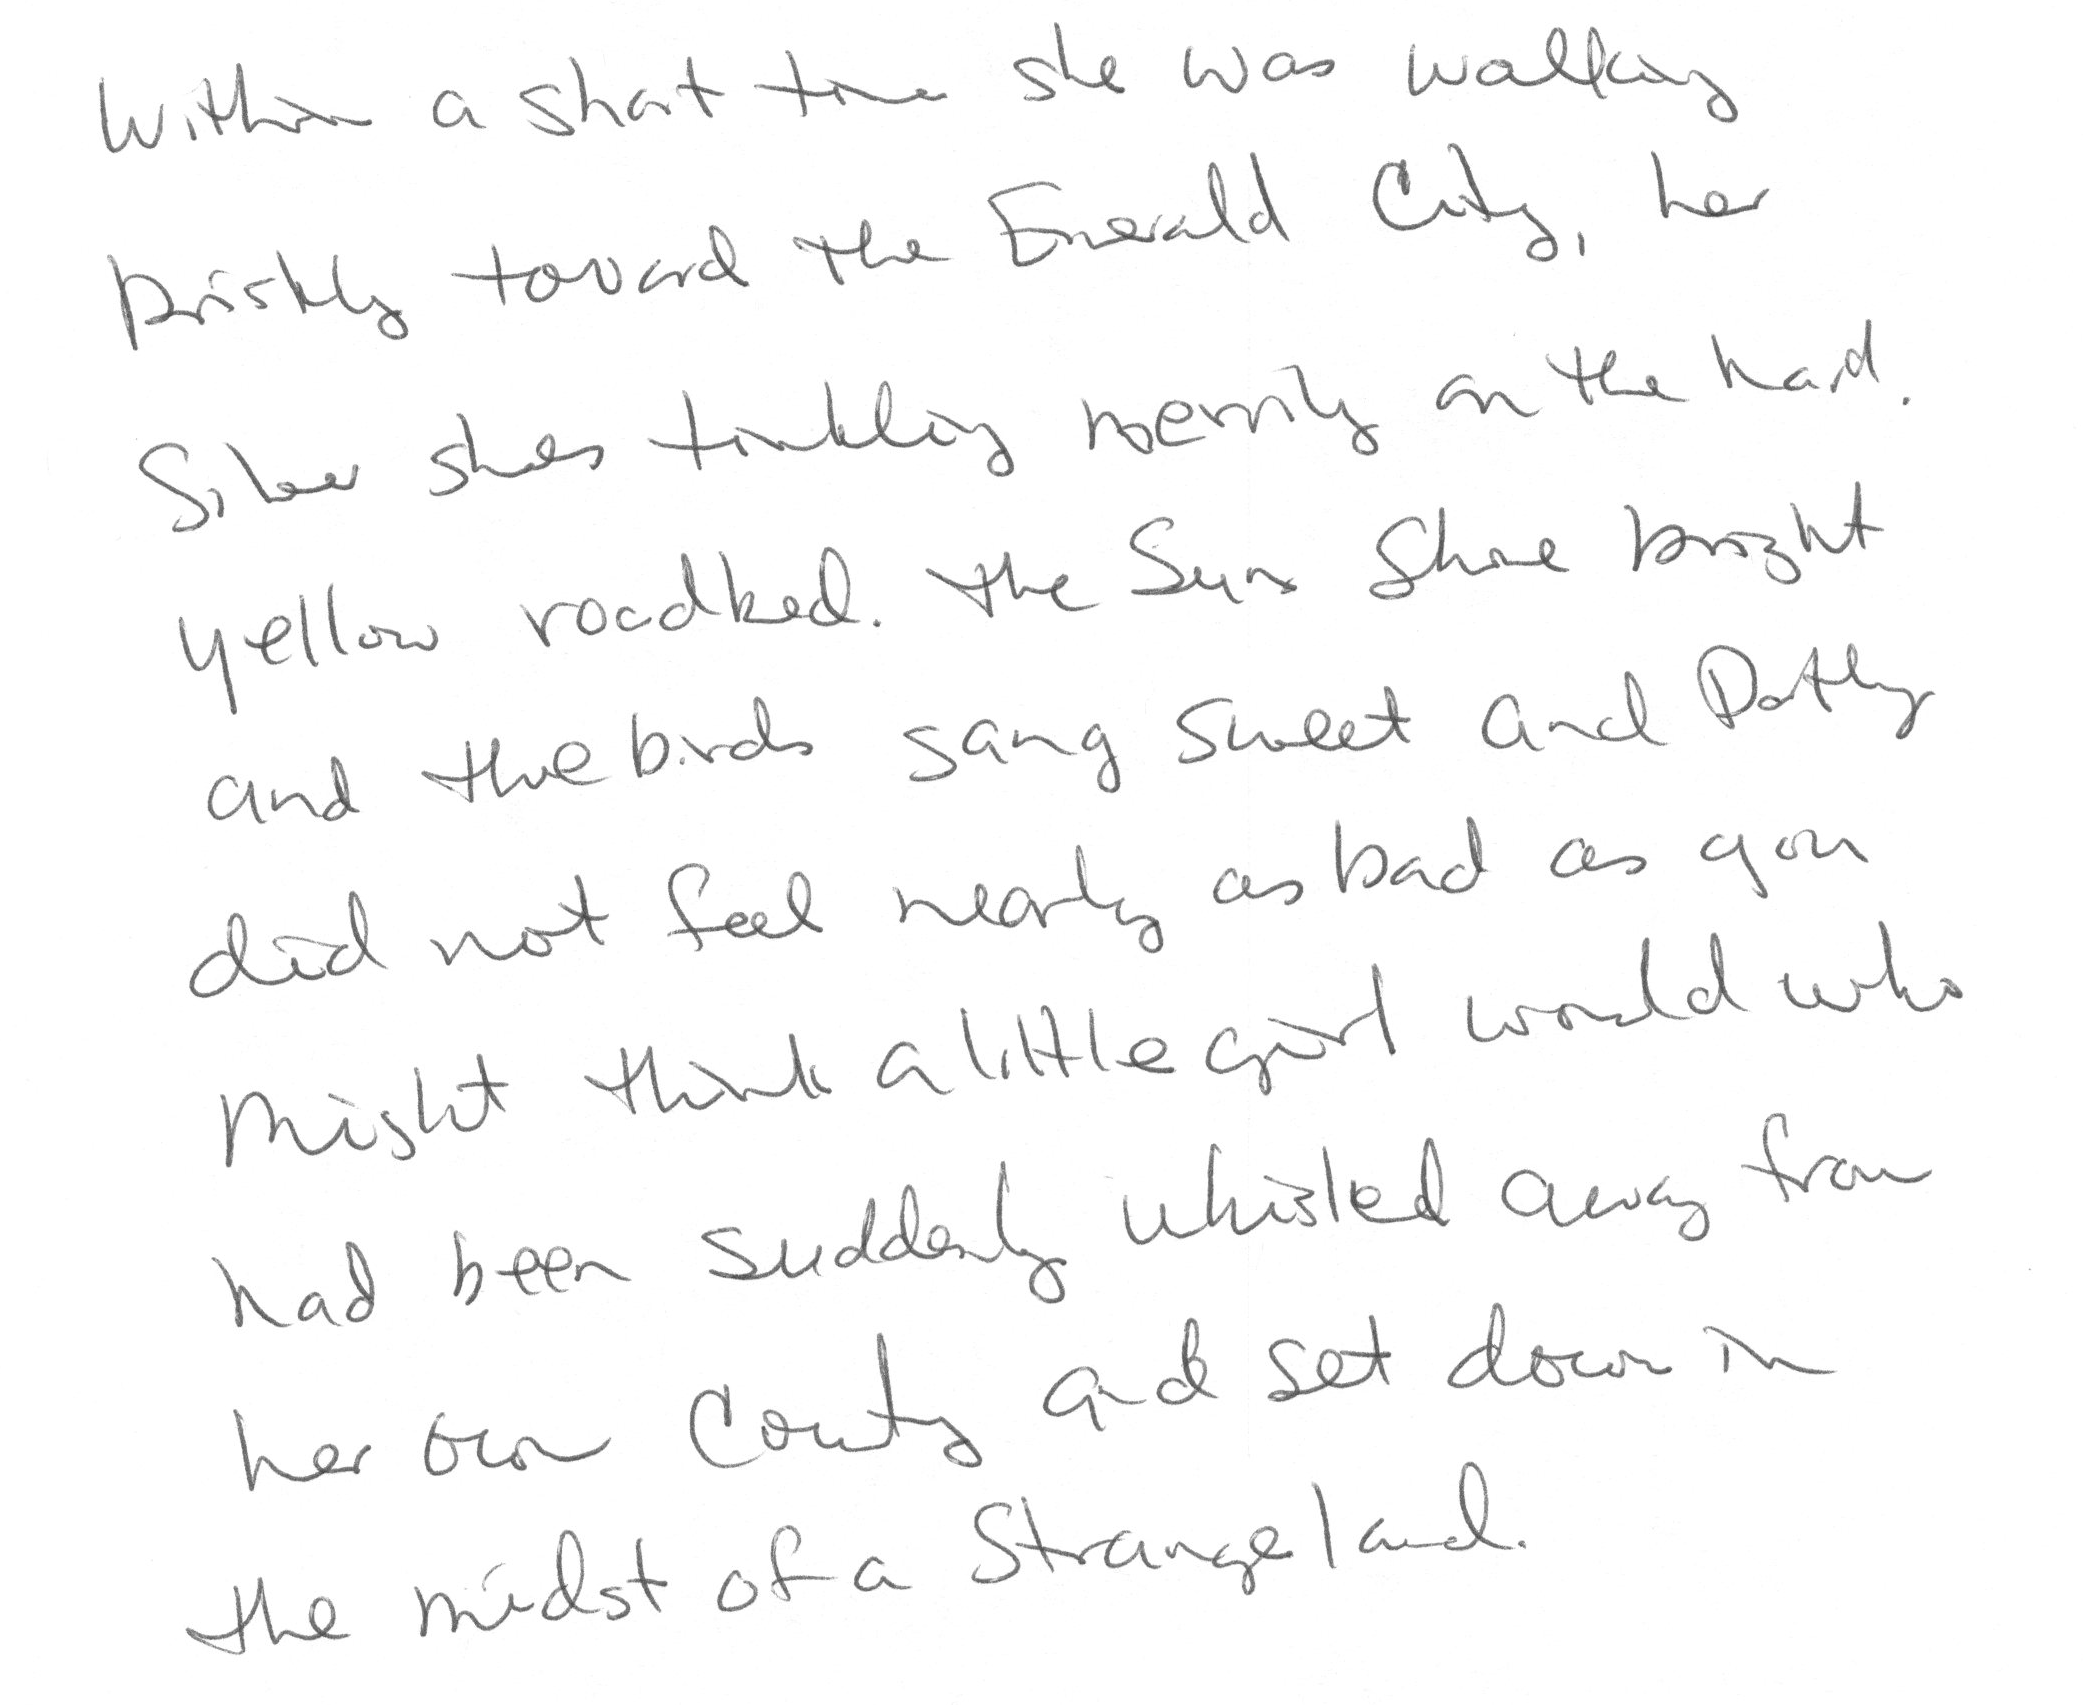 Within a short time she was walking
briskly toward the Emerald City, her
Silver shoes tinkling merrily on the hard.
yellow roadbed. the Sun Shone bright
and the birds sang sweet and Dothy
did not feel nearly as bad as you
might think a little girl would who
had been suddenly whisked away from
her own County and set down in
the midst of a Strange land.